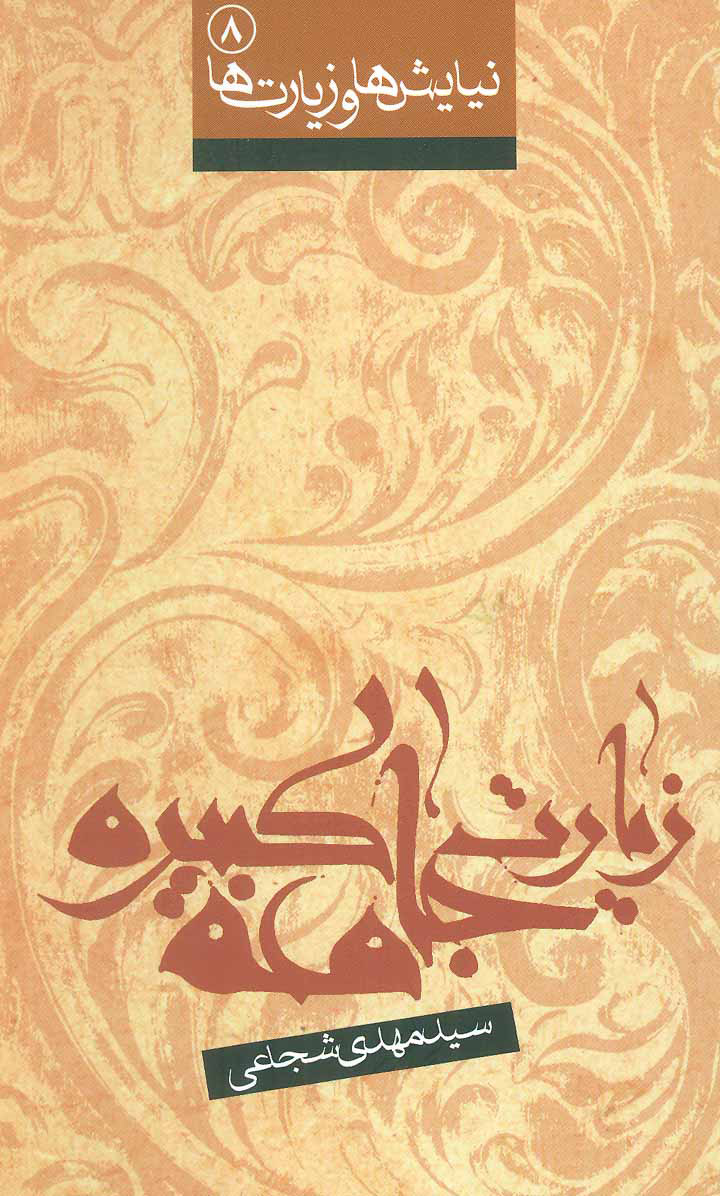 ۸
نیایش‌ها و زیارت‌ها
زیارت جامعه کبیره
سید مهدی شجاعی